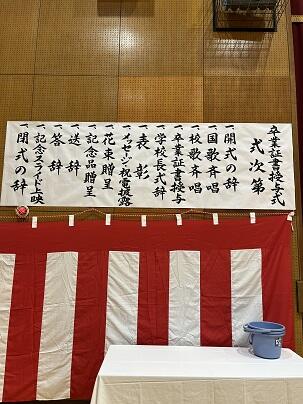 卒業証書授与式
式次第
一開式の辞
一国歌斉唱
一校歌斉唱
一卒業証書授与
一学校長式辞
一表彰
一メッセージ・祝電披露
一花束贈呈
一記念品贈呈
一送辞
一答辞
一記念スライド上映
一閉式の辞